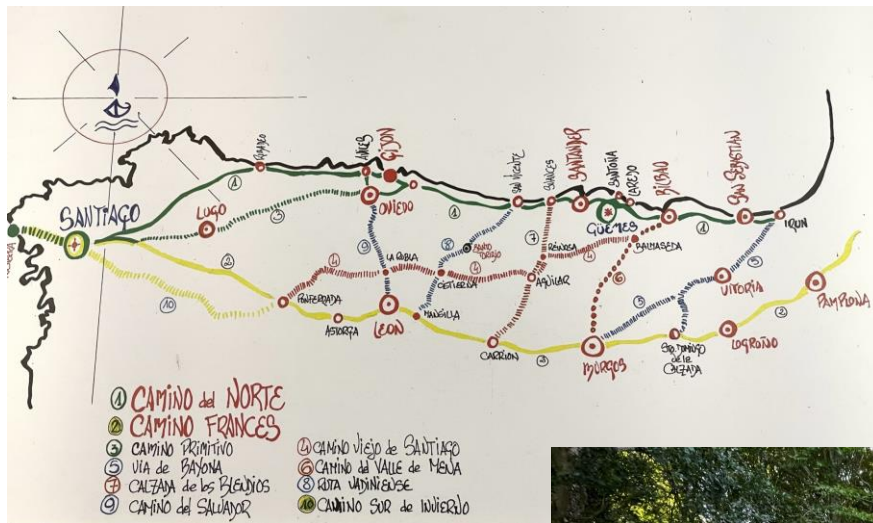 RIBADEO
AVILES
GIJON
SAN VICENTE
SUANCES
SANTANDER
SANTOÑA
LAREDO
BILBAO
SAN SEBASTIAN
IRUN
1
SANTIAGO
LUGO
3
OVIEDO
1
GÜEMES
1
2
9
8
SANTO TORIBIO
7
REINOSA
4
BALMASEDA
4
LA ROBLA
CISTIERNA
4
AGUILAR
6
5
VITORIA
5
PAMPLONA
10
PONFERRADA
ASTORGA
LEON
MANSILLA
CARRION
2
BURGOS
STO. DOMINGO
de la
CALZADA
LOGROÑO
2
1 CAMINO del NORTE
2 CAMINO FRANCES
3 CAMINO PRIMITIVO
5 VIA de BAYONA
7 CALZADA de los BLENDIOS
9 CAMINO del SALVADOR
4 CAMINO VIEJO de SANTIAGO
6 CAMINO del VALLE de MENA
8 RUTA VADINIENSE
10 CAMINO SUR de INVIERNO